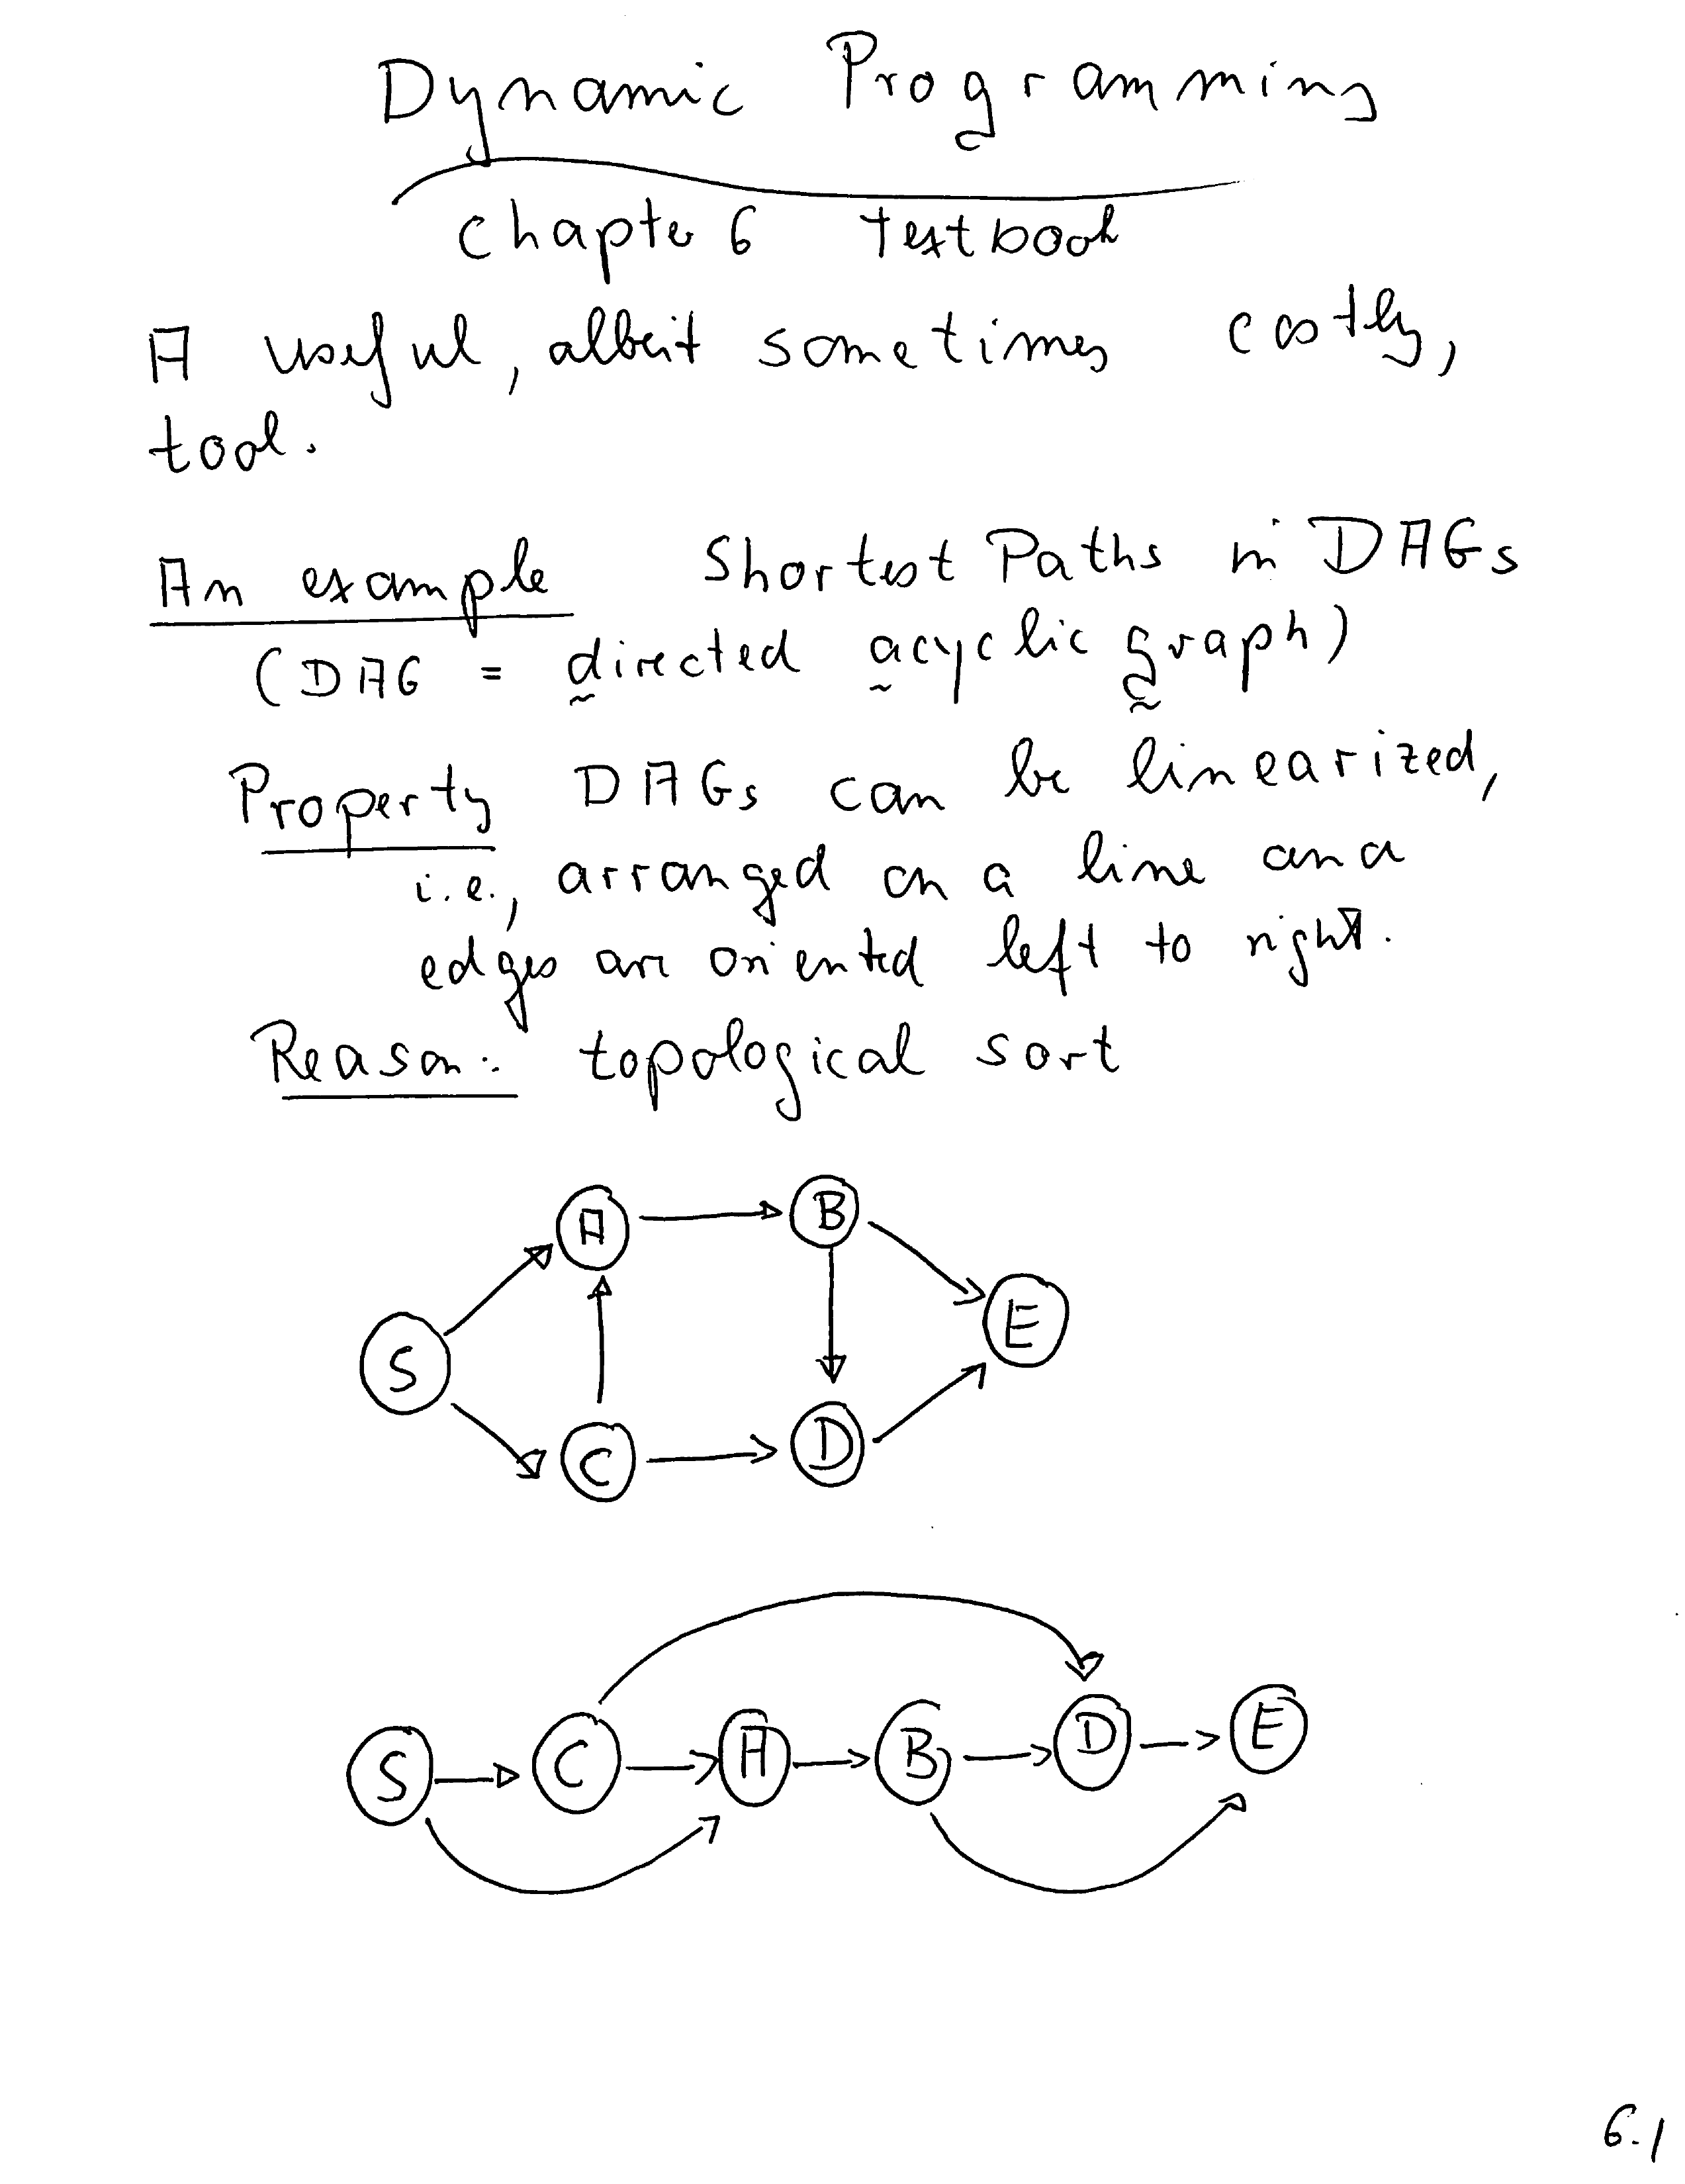 Dynamic Programming
Chapter 6 textbook
A useful, albeit sometimes costly,
tool.
An example Shortest Paths in DAGs
(DAG = directed acyclic graph)
Property DAGs can be linearized,
i.e., arranged on a line and
edges are oriented left to right.
Reason: topological sort
A B
E
S
C D
S C A B D E
6.1